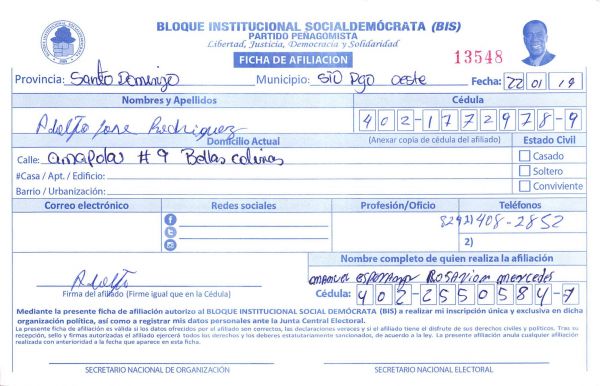 BLOQUE INSTITUCIONAL SOCIALDEMÓCRATA (BIS)
PARTIDO PEÑAGOMISTA
Libertad, Justicia, Democracia y Solidaridad
FICHA DE AFILIACION
13548
Provincia: Santo Domingo Municipio: STO Dgo oeste Fecha: 22 01 19
Nombres y Apellidos Cédula
Adolfo Jose Rodriguez 402-1772978-9
Domicilio Actual (Anexar copia de cédula del afiliado) Estado Civil
Calle: amapolas # 9 Bellas colinas Casado
#Casa / Apt. / Edificio: Soltero
Barrio / Urbanización: Conviviente
Correo electrónico Redes sociales Profesión/Oficio Teléfonos
(829) 408-2852
2)
Nombre completo de quien realiza la afiliación
Adolfo
Rosario mercedes
Firma del afiliado (Firme igual que en la Cédula) Cédula: 402-2550584-7
Mediante la presente ficha de afiliación autorizo al BLOQUE INSTITUCIONAL SOCIAL DEMÓCRATA (BIS) a realizar mi inscripción única y exclusiva en dicha
organización política, así como a registrar mis datos personales ante la Junta Central Electoral.
La presente ficha de afiliación es válida si los datos ofrecidos por el afiliado son correctos, las declaraciones veraces y si el afiliado tiene el disfrute de sus derechos civiles y políticos. Tras su
recepción, sello y firmas autorizadas el afiliado ejercerá todos los derechos y los deberes estatutariamente sancionados, de acuerdo a la ley. La presente afiliación anula cualquier afiliación
realizada con anterioridad a la fecha que aparece en esta ficha.
SECRETARIO NACIONAL DE ORGANIZACIÓN SECRETARIO NACIONAL ELECTORAL